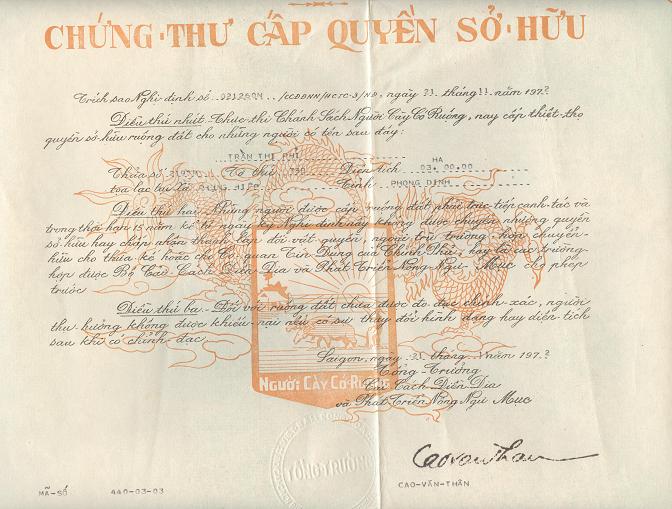 CHỨNG-THƯ CẤP QUYỀN SỞ-HỮU
Trích sao Nghị-định số /CCĐĐNN/HCTC-3/NĐ, ngày tháng 11 năm 197
Điều thứ nhứt.- Thực-thi Chánh Sách Người Cày Có Ruộng, nay cấp thiệt-thọ
quyền sở-hữu ruộng đất cho những người có tên sau đây:
TRẦN THỊ HA
Thửa số Tờ thứ 730 Diện tích 03.00.00
tọa lạc tại Xã HIỆP Tỉnh PHONG DINH
Điều thứ hai.- Những người được cấp ruộng đất phải trực tiếp canh-tác và
trong thời hạn 15 năm kể từ ngày ký Nghị định này không được chuyển nhượng quyền
sở-hữu hay chấp nhận thành lập đối-vật-quyền, ngoại trừ trường-hợp chuyển-
hữu cho thừa kế hoặc cho Cơ-quan Tín Dụng của Chánh Phủ, hay là các trường-
hợp được Bộ Cải-Cách Điền-Địa và Phát-Triển Nông-Ngư-Mục cho phép
trước.
Điều thứ ba.- Đối với ruộng đất chưa được đo đạc chính-xác, người
thụ-hưởng không được khiếu-nại nếu có sự thay đổi hình dạng hay diện-tích
sau khi có chỉnh-đạc.
Saigon, ngày tháng năm 197
Tổng-Trưởng
Cải Cách Điền-Địa
và Phát-Triển Nông Ngư Mục
NGƯỜI CÀY CÓ RUỘNG
TỔNG-TRƯỞNG
Caovanthan
CAO-VĂN-THÂN
MÃ-SỐ 440-03-03